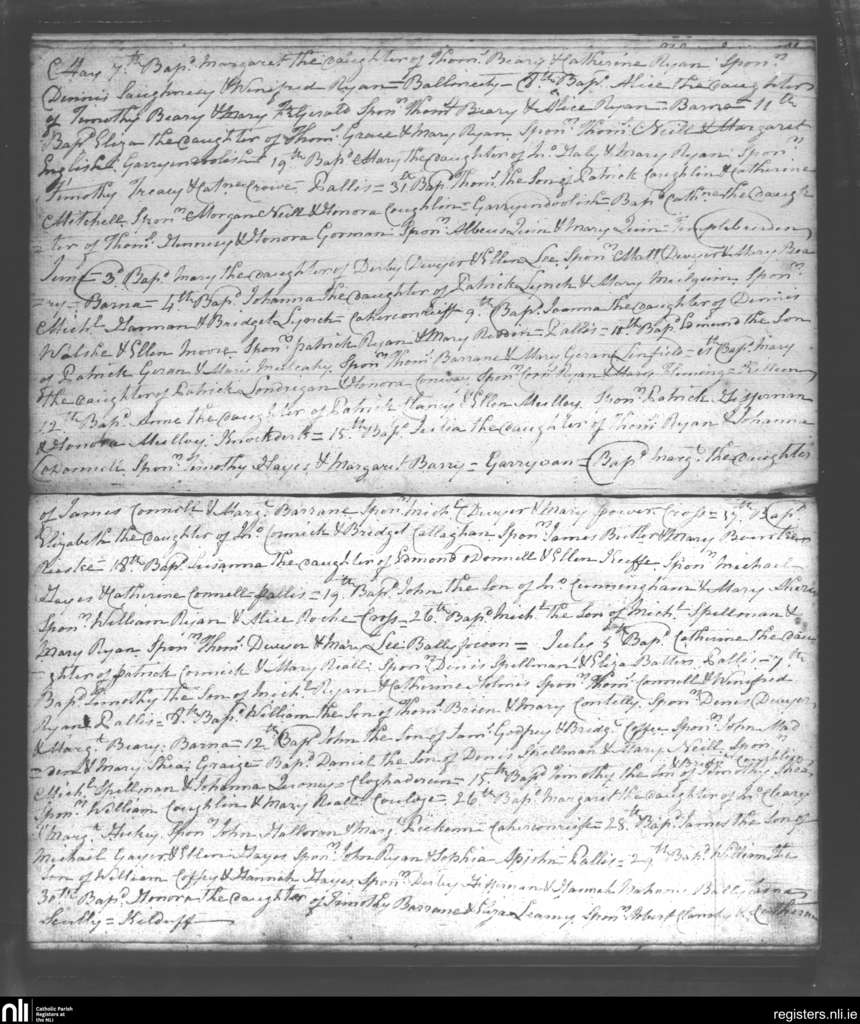 May 7th Bapd Margaret the daughter of Thoms Beary & Catherine Ryan Sponrs
Dennis Saughnesy & Winifred Ryan = Ballincity = 8th Bapd Alice the daughter
of Timothy Beary & Mary FzGerald Sponrs Thoms Beary & Alice Ryan = Barna = 11th
Bapd Eliza the daughter of Thoms Grace & Mary Ryan Sponrs Thoms Neill & Margaret
English = 19th Bapd Mary the daughter of Jno Daly & Mary Ryan Sponrs
Timothy Treacy & Catne Crowe Pallis = 31st Bapd Thoms the Son of Patrick Coughlin & Catherine
Mitchell Sponrs Morgan Neill & Honora Coughlin = Garryandoolish = Bapd Cathne the daugh
= ter of Thoms Hennesy & Honora Gorman Sponrs Quin & Mary Quin =
June = 3d Bapd Mary the daughter of Derby Dwyer & Ellen Lee Sponrs Matt Dwyer & Mary Bea
= ry = Barna = 4th Bapd Johanna the daughter of Patrick Lynch & Mary Sponrs
Michl Hannan & Bridget Lynch = 9th Bapd Joanna the daughter of Dennis
Walshe & Ellen Moore Sponrs patrick Ryan & Mary = Pallis = 10th Bapd Edmund the Son
of Patrick Geran & Mary Mulcahy Sponrs Thoms Barrane & Mary Geran Linfield = Bapd Mary
the daughter of Patrick Londregan & Honora Conway Sponrs Ryan & Fleming =
12th Bapd Anne the daughter of Patrick & Ellen Mulloy Sponrs Patrick Heffernan
& Honora Mulloy Knockderk = 15th Bapd the daughter of Thoms Ryan & Johanna
Sponrs Timothy Hayes & Margaret Barry = Garryvan = Bapd Margt the daughter
of James Connell & Margt Barrane Sponrs Michl Dwyer & Mary power Cross = 17th Bapd
Elizabeth the Daughter of Jno Cormick & Bridget Callaghan Sponrs James Butler & Mary
Reiske = 18th Bapd Susanna the daughter of Edmond oDonnell & Ellen Keeffe Sponrs Michael
Hayes & Catherine Connell = pallis = 19th Bapd John the Son of Jno Cunningham & Mary
Sponrs William Ryan & Alice Roche Cross = 26th Bapd Michl the Son of Michl Spellman &
Mary Ryan Sponrs Thoms Dwyer & Mary Lee = July 5th Bapd Catherine the dau
= ghter of patrick Cormick & Mary Ryall Sponrs Denis Spellman & Eliza Pallis = 7th
Bapd Timothy the Son of Michl Ryan & Catherine Sponrs Thoms Connell & Winifred
Ryan Pallis = 8th Bapd William the Son of Thoms Brien & Mary Connelly Sponrs Denis Dwyer
& Margt Beary Barna = 12th Bapd John the Son of Jams Godfrey & Bridgt Coffee Sponrs John Mad
= den & Mary Shea Graige = Bapd Daniel the Son of Denis Spellman & Mary Neill Sponrs
Michl Spellman & Johanna = = 15th Bapd Timothy the Son of Timothy Shea & Bridgt Coughlin
Sponrs William Coughlin & Mary Ryall = 26th Bapd Margaret the daughter of Jno Cleary
& Margt Hickey Sponrs John Halloran & Margt = 28th Bapd James the Son of
Michael & Ellen Hayes Sponrs John Ryan & Sophia Pallis = 29th Bapd William the
Son of William Coffey & Hannah Hayes Sponrs Derby Heffernan & Hannah
30th Bapd Honora the daughter of Timothy Barrane & Eliza Leamy Sponrs Robert & Catherine
Scully = Kilduff
nli
Catholic Parish
Registers at
the NLI
registers.nli.ie